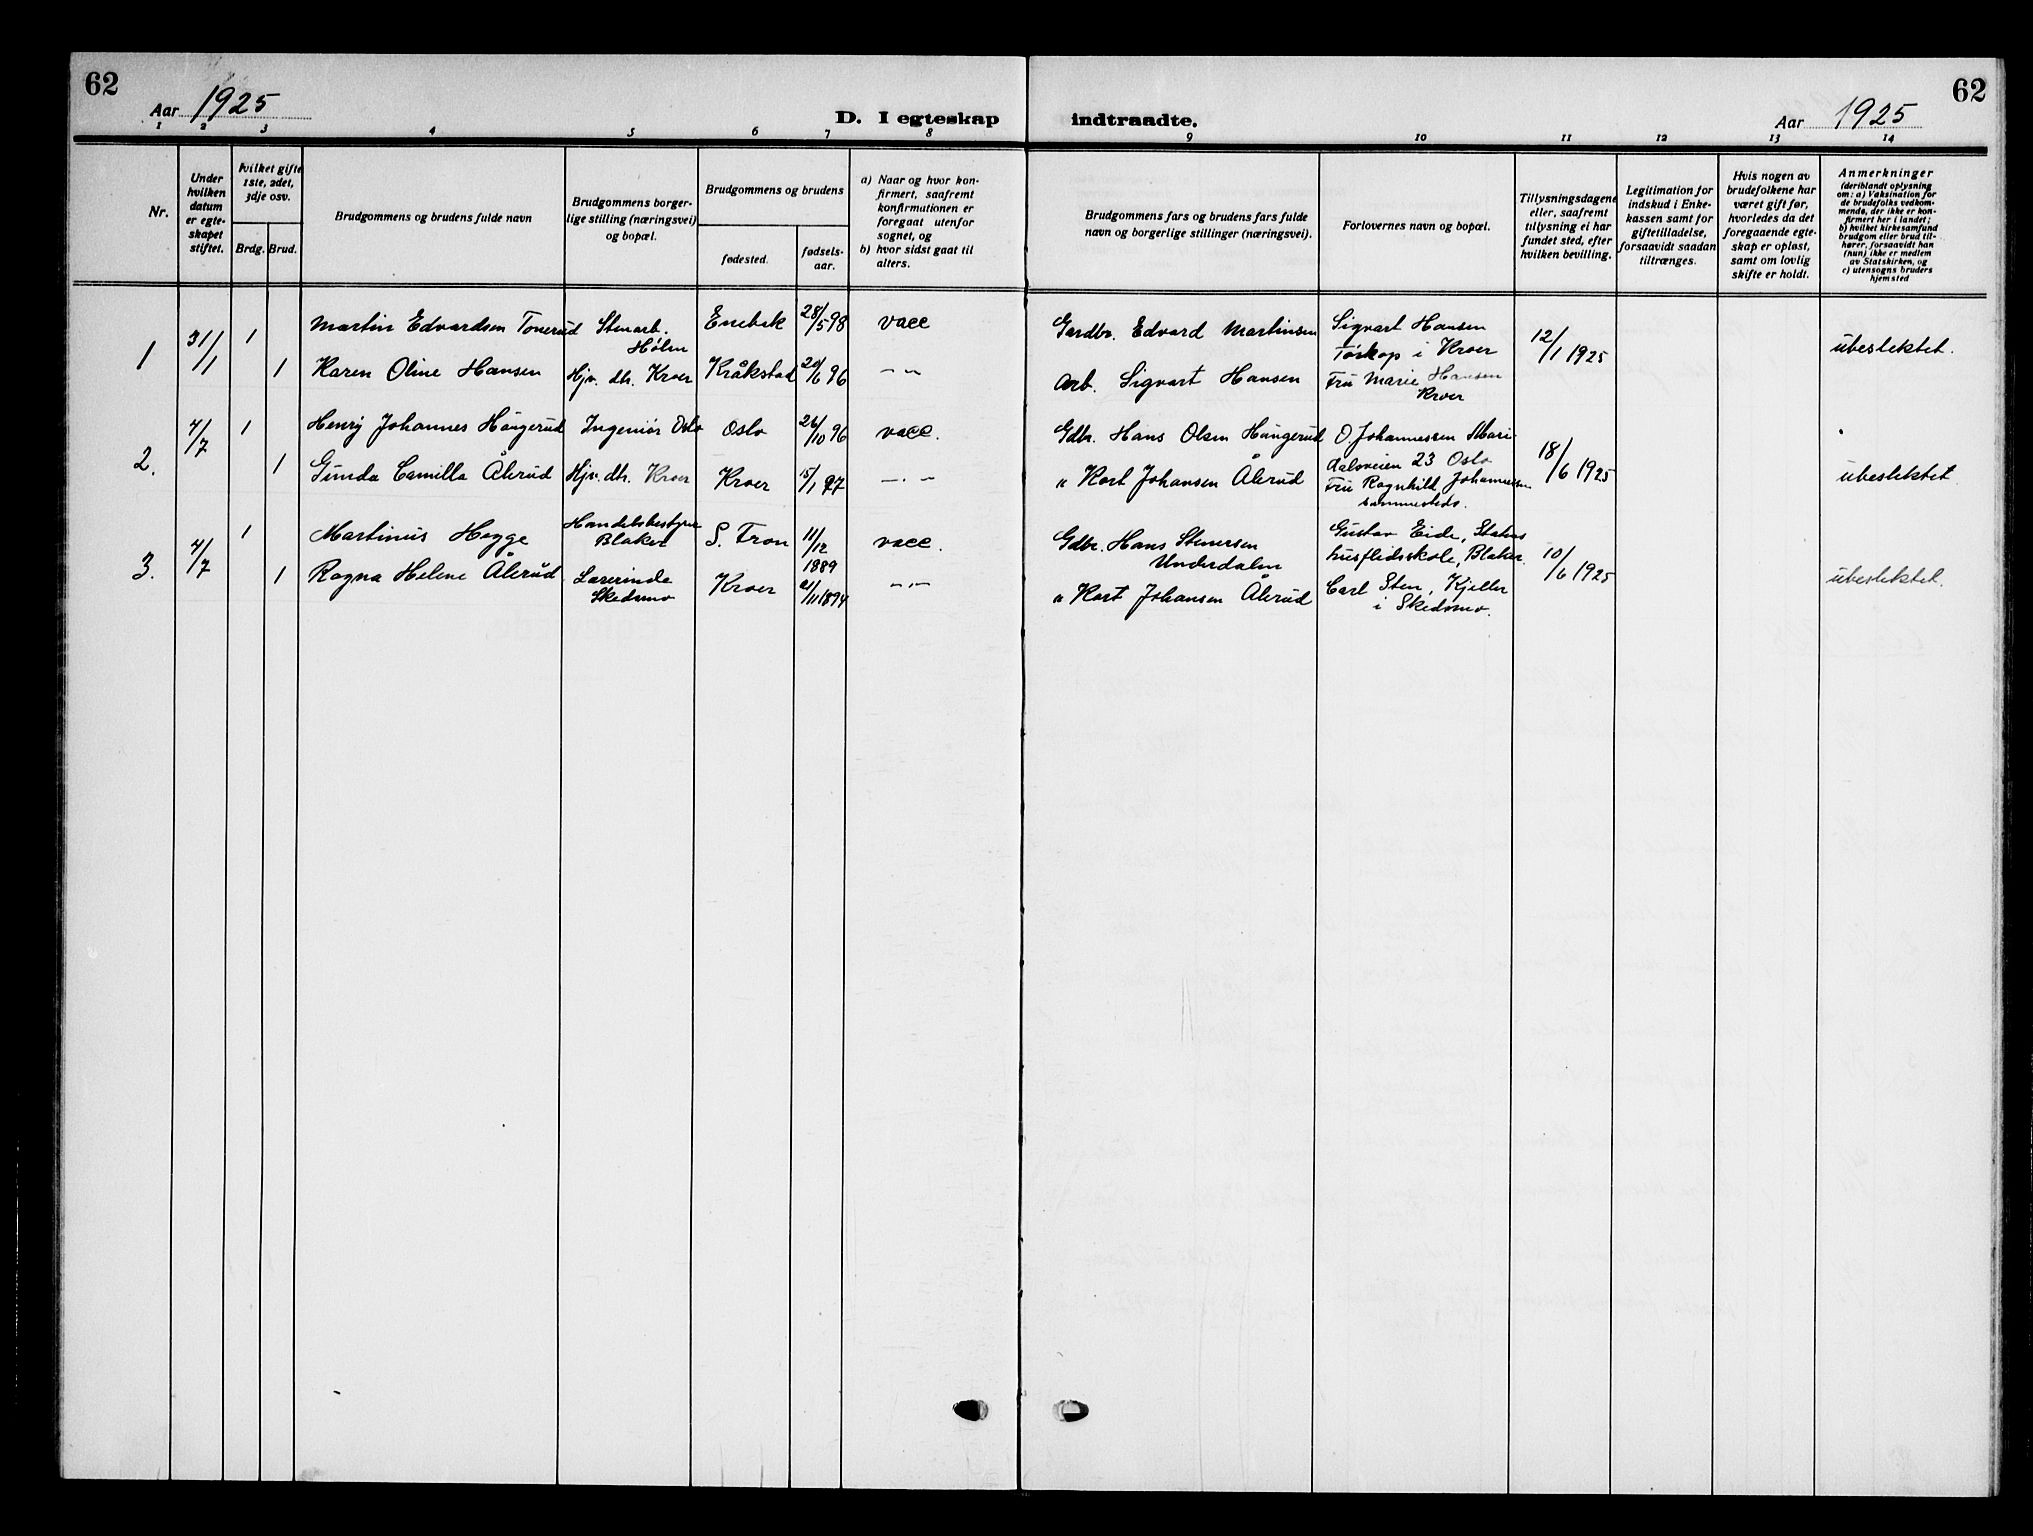 62
Aar 1925
D. I egteskap indtraadte.
Aar 1925
62
1 2 3 4 5 6 7 8 9 10 11 12 13 14
Nr.
Under hvilken datum er egteskapet stiftet.
hvilket gifte 1ste, 2det, 3dje osv.
Brdg. Brud.
Brudgommens og brudens fulde navn
Brudgommens borger-
lige stilling (næringsvei)
og bopæl.
Brudgommens og brudens
fødested.
fødsels-
aar.
a) Naar og hvor kon-
firmert, saafremt
konfirmationen er
foregaat utenfor
sognet, og
b) hvor sidst gaat til
alters.
Brudgommens fars og brudens fars fulde
navn og borgerlige stillinger (næringsvei).
Forlovernes navn og bopæl.
Tillysningsdagene
eller, saafremt
tillysning ei har
fundet sted, efter
hvilken bevilling.
Legitimation for
indskud i Enke-
kassen samt for
giftetilladelse,
forsaavidt saadan
tiltrænges.
Hvis nogen av
brudefolkene har
været gift før,
hvorledes da det
foregaaende egte-
skap er opløst,
samt om lovlig
skifte er holdt.
Anmerkninger
(deriblandt oplysning
om: a) Vaksination for
de brudefolks vedkom-
mende, der ikke er kon-
firmert her i landet;
b) hvilket kirkesamfund
brudgom eller brud til-
hører, forsaavidt han
(hun) ikke er medlem
av Statskirken, og
c) utensogns bruders
hjemsted
1 31/1 1 Martin Edvardsen Tonerud Stenarb. Hølen Enebak 28/5 98 vacc Gardbr. Edvard Martinsen Sigvart Hansen Torskop i Kroer 12/1 1925 ubeslektet.
1 Karen Oline Hansen Hjv. dtr. Kroer Kråkstad 20/6 96 -"- Arb. Sigvart Hansen Fru Marie Hansen Kroer
2. 4/7 1 Henry Johannes Haugerud Ingeniør Oslo Oslo 26/10 96 vacc. Gdbr. Hans Olsen Haugerud O. Johannessen Mari-
dalsveien 23 Oslo 18/6 1925 ubeslektet
1 Gunda Camilla Ålerud Hjv. dtr. Kroer Kroer 15/1 97 -"- " Kart Johansen Ålerud Fru Ragnhild Johannessen
sammesteds.
3. 4/7 1 Martinus Hegge Handelsbestyrer Blaker S. Fron 11/12 1889 vacc. Gdbr. Hans Stenersen Underdalen Gustav Eide, Statens
husflidsskole, Blaker. 10/6 1925 ubeslektet.
1 Ragna Helene Ålerud Lærerinde Skedsmo Kroer 21/11 1894 -"- " Kart Johansen Ålerud Carl Sten, Kjeller
i Skedsmo.